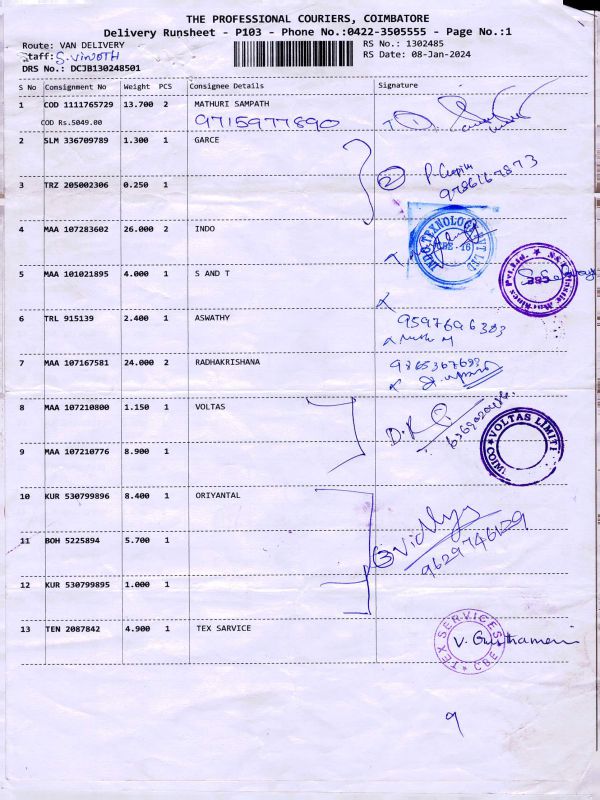 THE PROFESSIONAL COURIERS, COIMBATORE
Delivery Runsheet - P103 - Phone No.:0422-3505555 - Page No.:1
Route: VAN DELIVERY
RS No.: 1302485
Staff: S. VINOTH
RS Date: 08-Jan-2024
DRS No.: DCJB130248501
S No Consignment No Weight PCS Consignee Details Signature
1 COD 1111765729 13.700 2 MATHURI SAMPATH
COD Rs.5049.00 9715977890
2 SLM 336709789 1.300 1 GARCE
2 9786167873
3 TRZ 205002306 0.250 1
4 MAA 107283602 26.000 2 INDO
5 MAA 101021895 4.000 1 S AND T
6 TRL 915139 2.400 1 ASWATHY
9597696383
7 MAA 107167581 24.000 2 RADHAKRISHANA
8 MAA 107210800 1.150 1 VOLTAS
VOLTAS LIMITE
9 MAA 107210776 8.900 1
10 KUR 530799896 8.400 1 ORIYANTAL
11 BOH 5225894 5.700 1
3 9629746129
12 KUR 530799895 1.000 1
13 TEN 2087842 4.900 1 TEX SARVICE
TEX SERVICES CBE
9